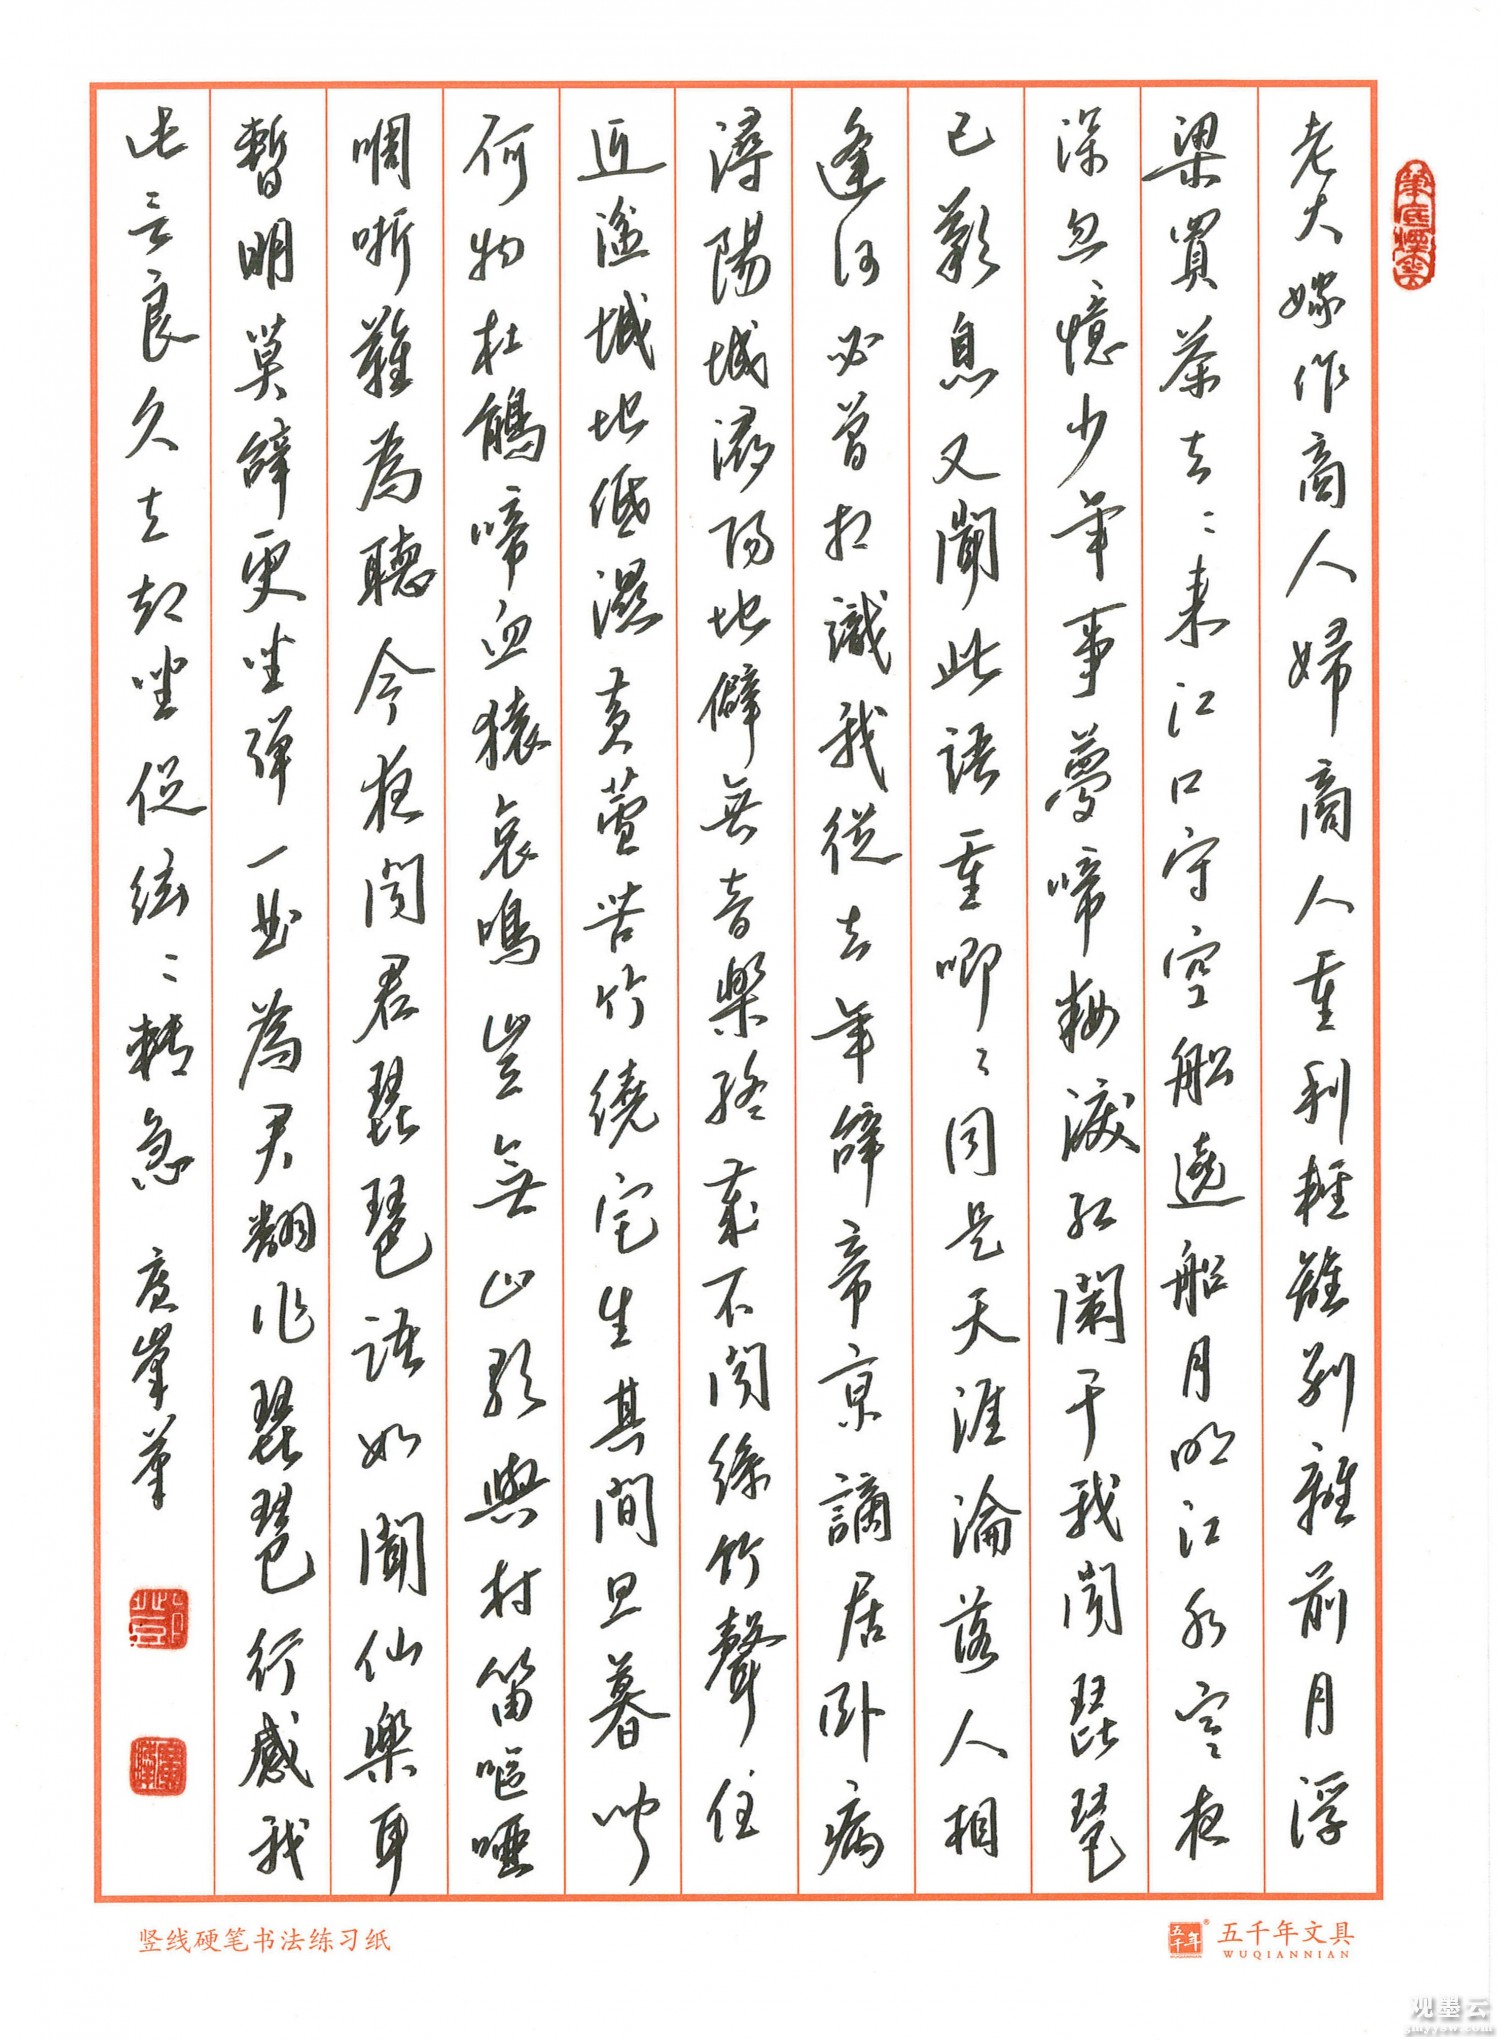 筆底煙雲
老大嫁作商人婦商人重利輕離別離前月浮
梁買茶去〻來江口守空船遶船月明江水寒夜
深忽憶少年事夢啼粧淚紅闌干我聞琵琶
已歎息又聞此語重唧〻同是天涯淪落人相
逢何必曾相識我從去年辭帝京謫居卧病
潯陽城潯陽地僻無音樂終歲不聞絲竹聲住
近湓城地低濕黃蘆苦竹繞宅生其間旦暮聞
何物杜鵑啼血猿哀鳴豈無山歌與村笛嘔啞
啁哳難為聽今夜聞君琵琶語如聞仙樂耳
暫明莫辭更坐彈一曲為君翻作琵琶行感我
此言良久立却坐促絃〻轉急 廣峯筆
竖线硬笔书法练习纸
五千年
五千年文具
WUQIANNIAN
观墨云